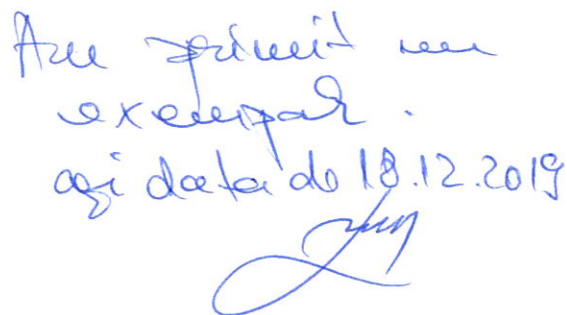 Am primit un
exemplar.
azi data de 18.12.2019